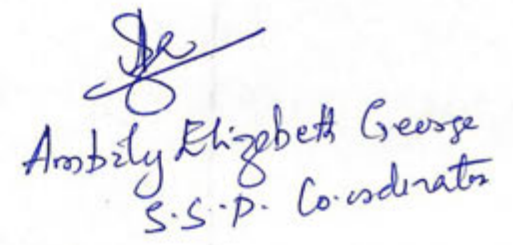 Ambily Elizebeth George
S.S.P. Co-ordinator